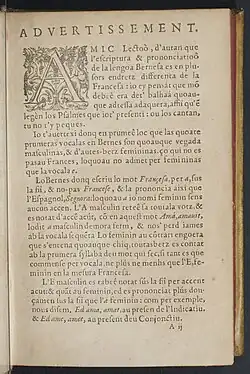 ADVERTISSEMENT.
AMIC Lectoò, d'autan que
l'escriptura & prononciatioò
de la lengoa Bernesa es en plu-
sors endrets differenta de la
Francesa: io ey pensat que mò
debé era det' balhaà quoauque
adressa adaquera, affi qu'en
legén los Psalmes que iot' presenti: ou los cantan,
tu no-t'y peques.
Io t'auertexi donq en prumeè loc que las quoate
prumeras vocalas en Bernes son quoauque vegada
masculinas, & d'autes-bets femininas: ço qui no es
pas au Frances, loquoau no admet per femininas
que la vocale e.
Lo Bernes donq escriu lo mot Françesa, per a, sus
la fii, & no-pas Françese, & la prononcia aixi que
l'Espagnol, Segnora: loquoau a io nomi feminin sens
aucun accen. L'A masculin retee la vocala outa, &
es notat d'acce acut, cò en aquest mot Amà, amauit,
lodit a masculin demora ferm, & no's perd iames
ab la vocala seguéta. Lo feminin au còtrari engoera
que s'entena quoauque chiq, toutas bets es contat
ab la prumera syllaba deu mot qui seseix tant es que
commense per vocala, ne plus ne menhs que l'E, fe-
minin en la mesura Francesa.
L'E masculin es tabé notat sus la fii per accent
acut: & quât au feminin, ed es prononciat plus dou-
çamen sus la fii que l'a feminin: com per exemple,
nous disem, Ed ama, amat, au presen de l'Indicatiu.
& Ed ame, amet, au presen deu Conjonctiu.
A ij